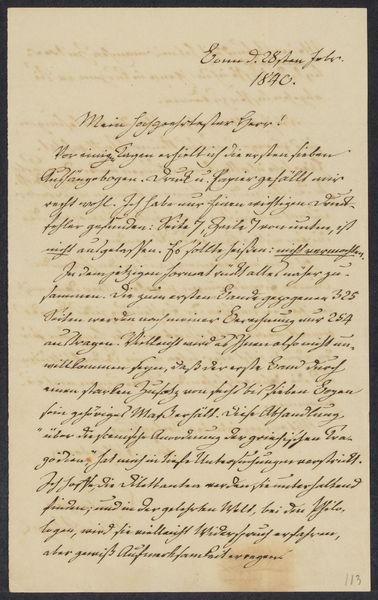 Bonn d. 28sten Febr.
1840.
Mein hochgeehrtester Herr!
Vor einigen Tagen erhielt ich die ersten sieben
Aushängebogen. Druck u. Papier gefällt mir
recht wohl. Ich habe nur einen wichtigen Druck-
fehler gefunden: Seite 7, Zeile 7 von unten, ist
nicht ausgelassen. Es sollte heißen: nicht vermochten.
In dem jetzigen Format rückt alles näher zu-
sammen. Die zum ersten Bande gezogenen 325
Seiten werden nach meiner Berechnung nur 254
austragen. Vielleicht wird Ihnen also nicht un-
willkommen seyn, daß der erste Band durch
einen starken Zusatz von sechs bis sieben Bogen
sein gehöriges Maß erhält. Diese Abhandlung
"über die scenische Anordnung der griechischen Tra-
gödien" hat mich in tiefe Untersuchungen verstrickt.
Ich hoffe, die Dilettanten werden sie unterhaltend
finden; und in der gelehrten Welt, bei den Philo-
logen, wird sie vielleicht Widerspruch erfahren,
aber gewiß Aufmerksamkeit erregen.
113